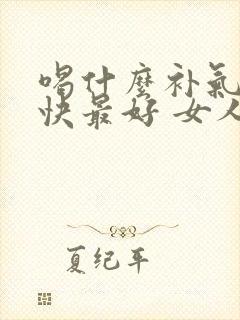 喝什麼补氣
快最好 女人
夏纪年